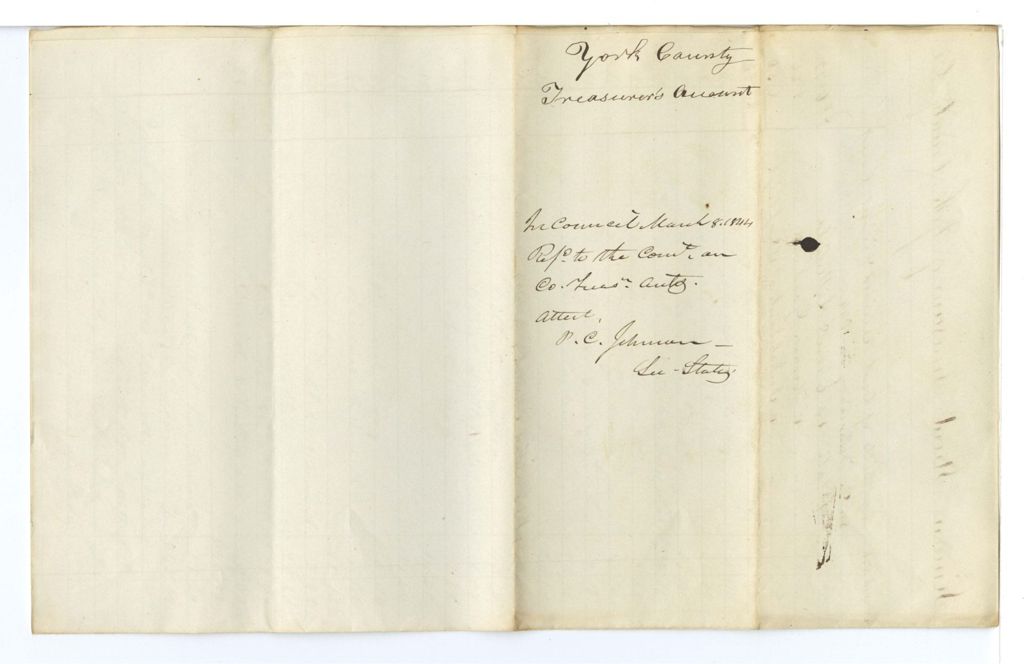 York County
Treasurer's Account
In Council March 8. 1844
Refd. to the Comte. on
Co. Treasr. Accts.
Attest,
P. C. Johnson –
Sec - State.